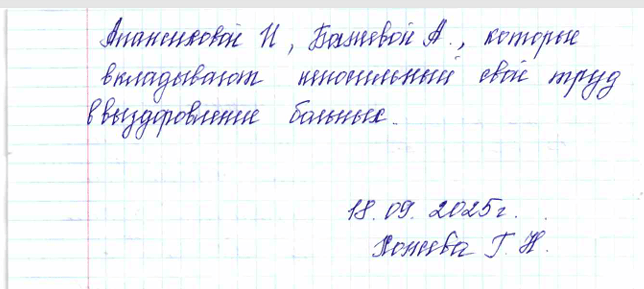 Апанасковой И, Бажевой А., которые
вкладывают непосильный свой труд
в выздоровление больных.
18.09.2025г.
Хонева Г.Н.